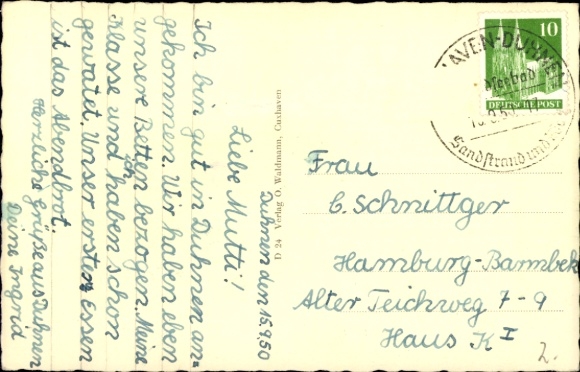 Duhnen den 15.9.50
Liebe Mutti!
Ich bin gut in Duhnen an-
gekommen. Wir haben eben
unsere Betten bezogen. Meine
Klasse und ich haben schon
gewatet. Unser erstes Essen
ist das Abendbrot.
Herzliche Grüße aus Duhnen
Deine Ingrid
D 24 Verlag O. Waldmann, Cuxhaven
10
DEUTSCHE POST
AVEN-DUHNEN
Seebad
Sandstrand und
Frau
C. Schnittger
Hamburg-Barmbek
Alter Teichweg 7-9
Haus K I
2.